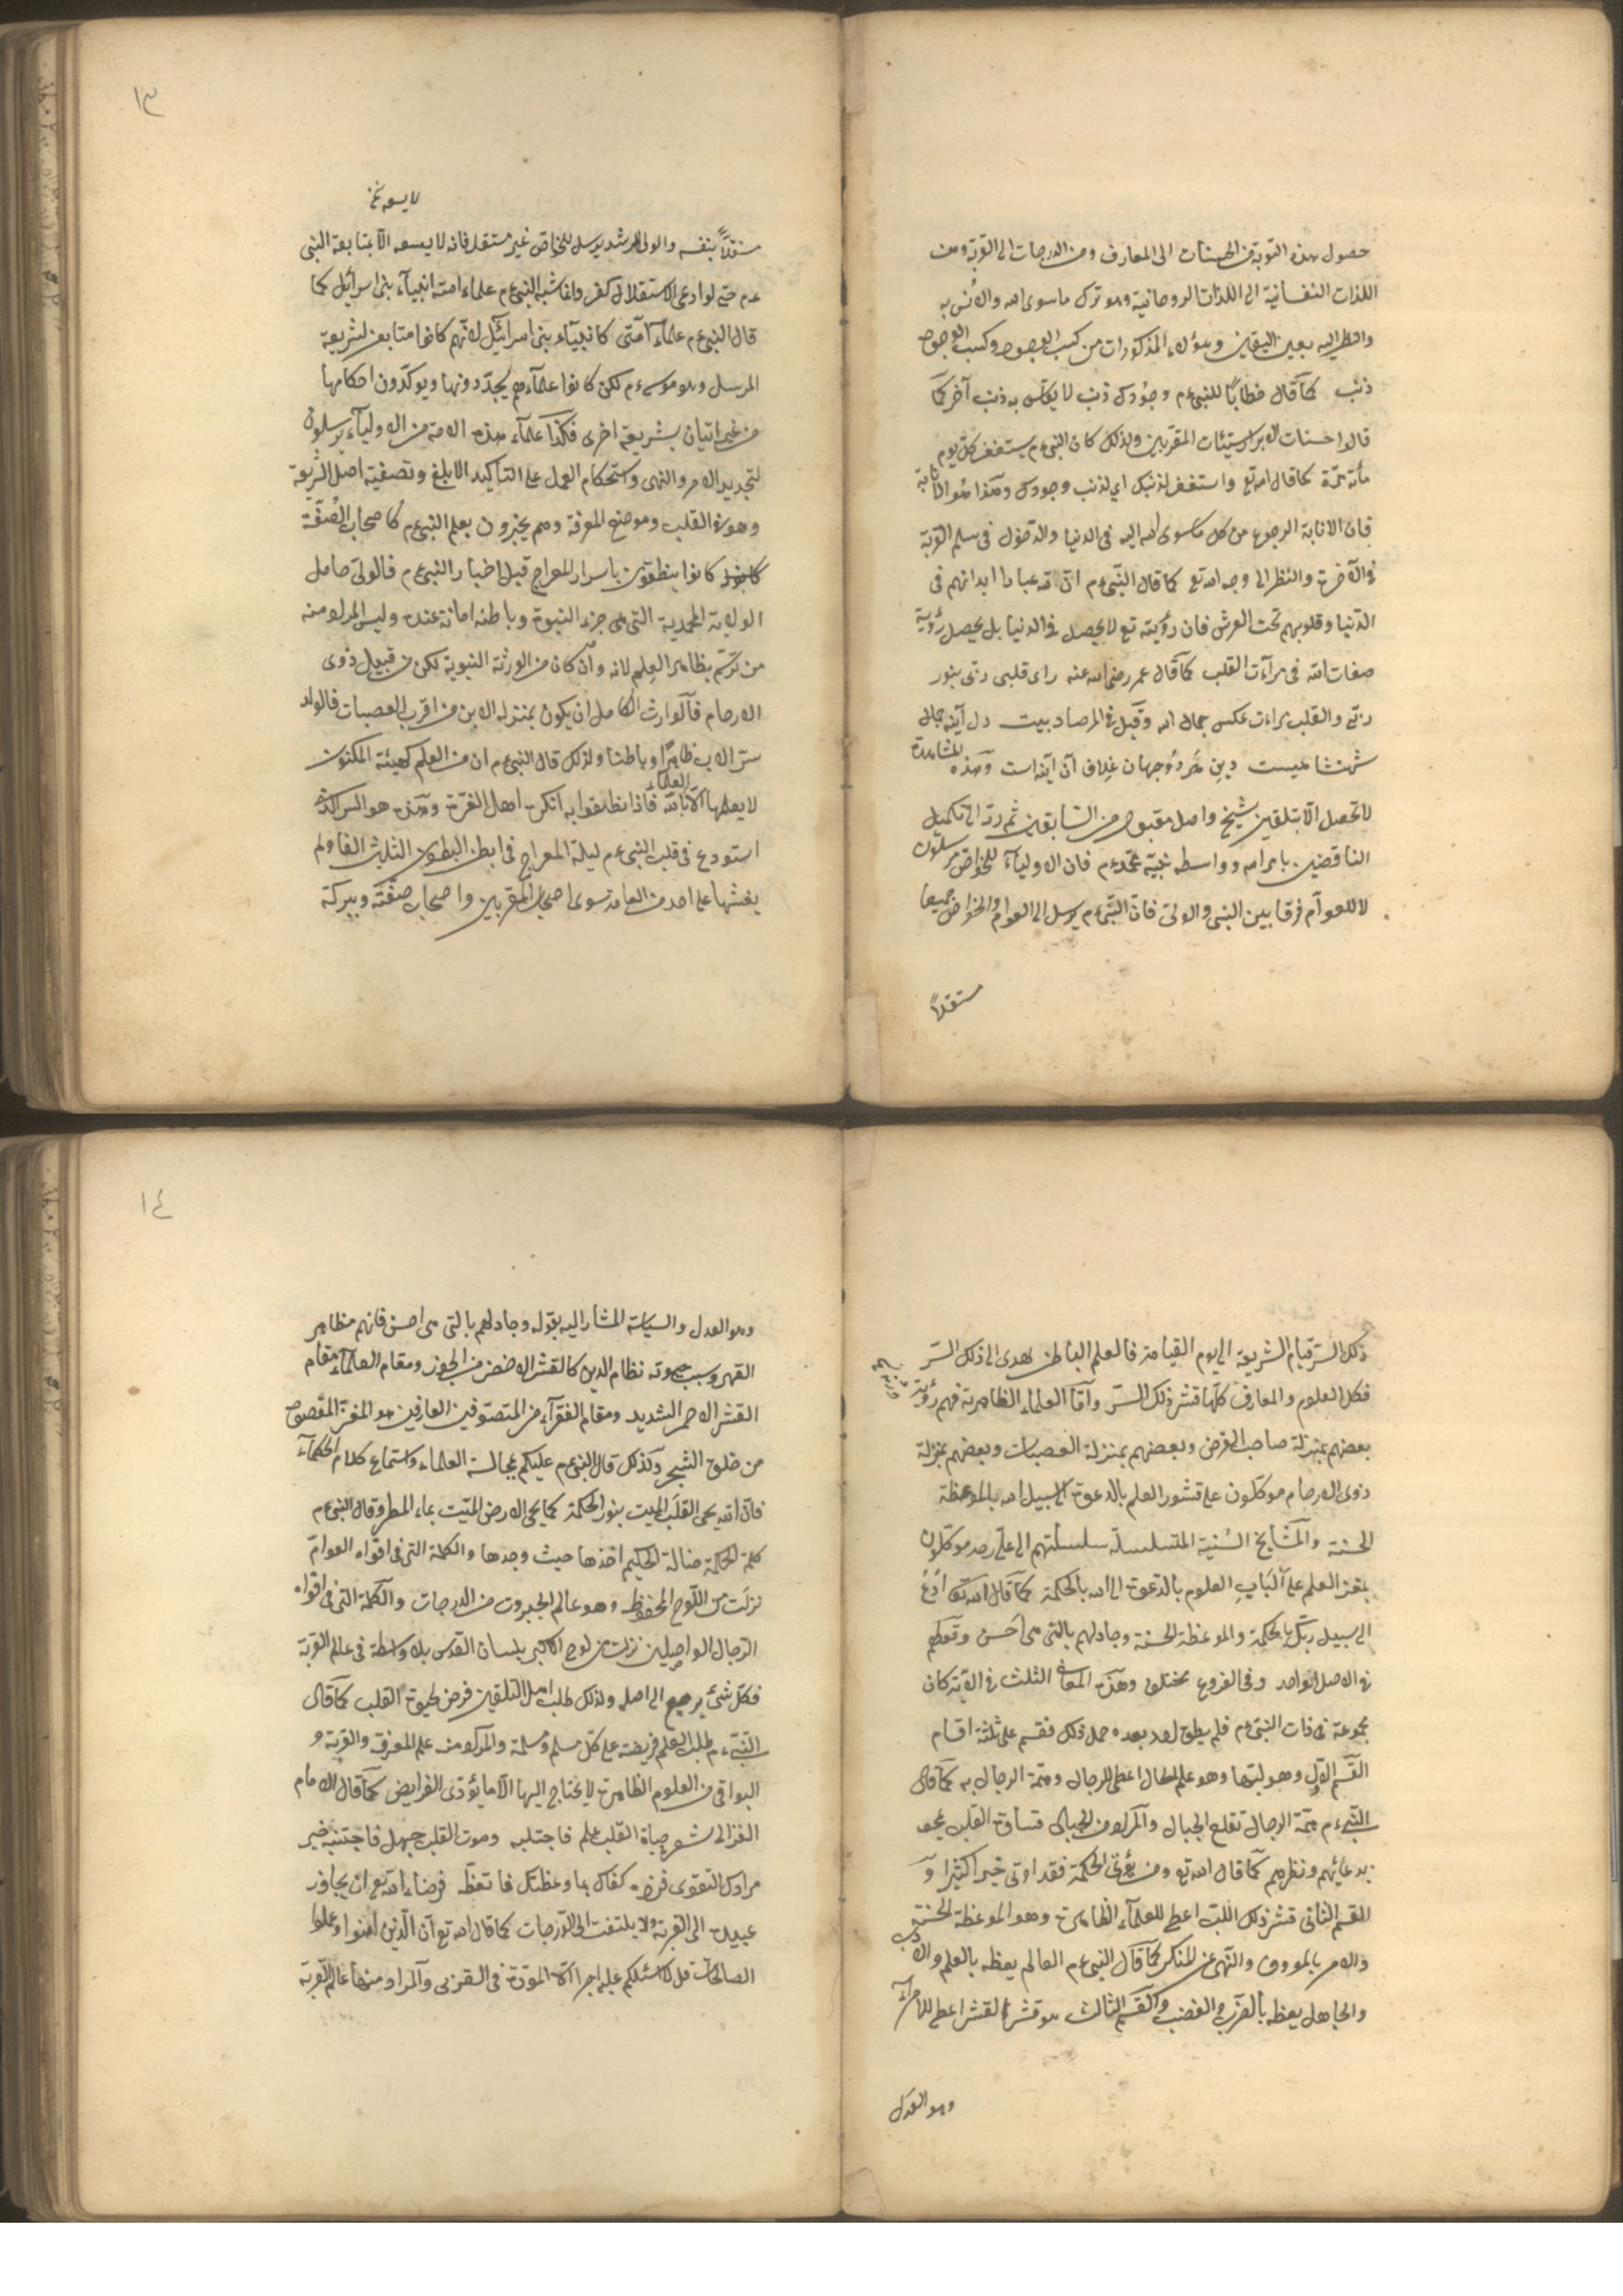 حصول هذه التوبة من الحسنات الى المعارف ومن الدرجات الى القربة ومن
اللذات النفسانية الى اللذات الروحانية وهو ترك ماسوى الله والانس به
والنظر اليه بعين اليقين وهؤلاء المذكورات من كسب الوجود وكسب الوجود
ذنب كما قال خطابًا للنبى ءم وجودك ذنب لا يقاس به ذنب آخر كما
قالوا حسنات الابرار سيئات المقربين ولذلك كان النبى ءم يستغفر كل يوم
مأئة مرّة كما قال الله تع واستغفر لذنبك اى لذنب وجودك وهذا هو الانابة
فان الانابة الرجوع من كل ماسوى الله اليه فى الدنيا والدخول فى سلم القربة
فى الآخرة والنظر الى وجه الله تع كما قال النّبى ءم انّ لله عبادا ابدانهم فى
الدّنيا وقلوبهم تحت العرش فان رؤيته تع لا يحصل فى الدنيا بل يحصل رؤية
صفات الله فى مرآت القلب كما قال عمر رضى الله عنه راى قلبى ربّى بنور
ربّى والقلب مراءت عكس جمال الله وقيل فى المرصاد بيت دل آينه جمال
شهنشاهيست دين هُر دُو جهان غِلاف آن آينه است وهذه المشاهدة
لا تحصل الّا بتلقين شيخ واصل مقبول من السّابقين ثم ردّ الى تكميل
الناقصين بامر الله وواسطه نبيّه محمّد ءم فان الاولياء للخواص مرسلون
لا للعوآم فرقا بين النبى والولى فان النّبى ءم يرسل الى العوام والخواصّ جميعا
مستقلاً
١٣
لا يسعه نخ
مستقلاً بنفسه والولى المرشد يرسل للخاصّ غير مستقل فانه لا يسعه الّا بمتابعة النبى
ءم حتى لو ادعى الاستقلال كفر وانما شبه النبى ءم علماء امته انبيآء بنى اسرائيل كما
قال النبى ءم علمآء امّتى كانبيآء بنى اسرائيل لانّهم كانوا متابعين لشريعة
المرسل وهو موسى ءم لكن كانوا علمآءهم يجدّدونها ويوكّدون احكامها
من غير اتيان بشريعة اخرى فكذا علمآء هذه الامة من الاوليآء يرسلون
لتجديد الامر والنهى واستحكام العمل على التاكيد الابلغ وتصفية اصل الشريعة
وهو فى القلب وموضع المعرفة وهم يخبرون بعلم النبى ءم كاصحاب الصُفّة
كانوا ينطقون باسرار المعراج قبل اخبار النبى ءم فالولى حامل
الولاية المحمدية التى هى جزء النبوة وباطنه امانة عنده وليس المراد منه
من ترسّم بظاهر العِلم لانه وان كان من الورثة النبوية لكن من قبيل ذوى
الارحام فالوارث الكامل ان يكون بمنزلة الابن من اقرب العصبات فالولد
سرّ الاب ظاهرًا وباطنا ولذلك قال النبى ءم ان من العلم كهيئة المكنون
لا يعلمها الّا العلماء بالله فاذا نطقوا به انكره اهل الغرّة وهذه هو السر الذى
استودع فى قلب النبى ءم ليلة المعراج فى ابطن البطون الثلثين الفا ولم
يفشها على احد من العامة سوى اصحاب المقربين واصحاب صفّته وببركة
ذلك السرّ قيام الشريعة الى يوم القيامة فالعلم الباطن يهدى الى ذلك السّر
فكل العلوم والمعارف كلّها قشر ذلك السّر وامّا العلماء الظاهرية فهم ورثة
بعضهم بمنزلة صاحب الفرض وبعضهم بمنزلة العصبات وبعضهم بمنزلة
ذوى الارحام موكّلون على قشور العلم بالدعوة الى سبيل الله بالموعظة
الحسنة والمشايخ السّنية المتسلسلة سلسلتهم الى على رضه موكّلون
بمغز العلم على ألبَاب العلوم بالدّعوة الى الله بالحكمة كما قال الله تع ادعُ
الى سبيل ربّك بالحكمة والموعظة الحسنة وجادلهم بالتى هى احسن وقولهم
فى الاصل الواحد وفى الفروع مختلف وهذه المعانى الثلث فى الآية كان
مجموعة فى ذات النبى ءم فلم يطق احد بعده حمل ذلك فقسم على ثلثة اقسام
القسم الاوّل وهو لبّها وهو علم الحال اعطى للرجال وهمّة الرجال به كما قال
النّبى ءم همّة الرجال تقلع الجبال والمراد من الجبال قساوة القلب يمحو
بدعائهم ونظرهم كما قال الله تع ومن يؤتى الحكمة فقد اوتى خيرا كثيرا و
القسم الثانى قشر ذلك اللب اعطى للعلمآء الظاهرة وهو الموعظة الحسنة
والامر بالمعروف والنّهى عن المنكر كما قال النبى ءم العالم يعظه بالعلم والادب
والجاهل يعظه بالضرب والغضب والقسم الثالث هو قشر القشر اعطى للامرآء
وهو العدل
١٤
وهو العدل والسياسة المشار اليه بقوله وجادلهم بالتى هى احسن فانهم مظاهر
القهر وسبب صونة نظام الدين كالقشر الاخضر من الجوز ومقام العلمآء مقام
القشر الاحمر الشديد ومقام الفقرآء من المتصوفين العارفين هو المغز المقصود
من خلق الشجر وكذلك قال النبى ءم عليكم بمجالسة العلماء واستماع كلام الحكمآء
فان الله يحى القلب الميت بنور الحكمة كما يحى الارض الميّت بماء المطر وقال النبى ءم
كلمة الحكمة ضالة الحكيم اخذها حيث وجدها والكلمة التى فى افواه العوامّ
نزلت من اللّوح المحفوظ وهو عالم الجبروت من الدرجات والكلمة التى فى افواه
الرّجال الواصِلين نزلت من لوح الاكبر بلسان القدس بلا واسطة فى عالم القربة
فكلّ شئ يرجع الى اصله ولذلك طلب اهل التلقين فرض لحيوة القلب كما قال
النّبى ءم طلب العلم فريضة على كلّ مسلم ومسلمة والمراد منه علم المعرفة والقربة و
البواقى من العلوم الظاهرة لا يحتاج اليها الّا ما يؤدّى الفرايض كما قال الامام
الغزالى شعر حياة القلب علم فاجتلبه وموت القلب جهل فاجتنبه خير
مرادك التقوى فزده كفاك بما وعظتك فاتعظه فرضاء الله تع ان يجاوز
عبيده الى القربة ولا يلتفت الى الدّرجات كما قال الله تع ان الّذين امنوا وعملوا
الصالحات قل لا اسئلكم عليه اجرا الّا المودّة فى القربى والمراد منها عالم القربة